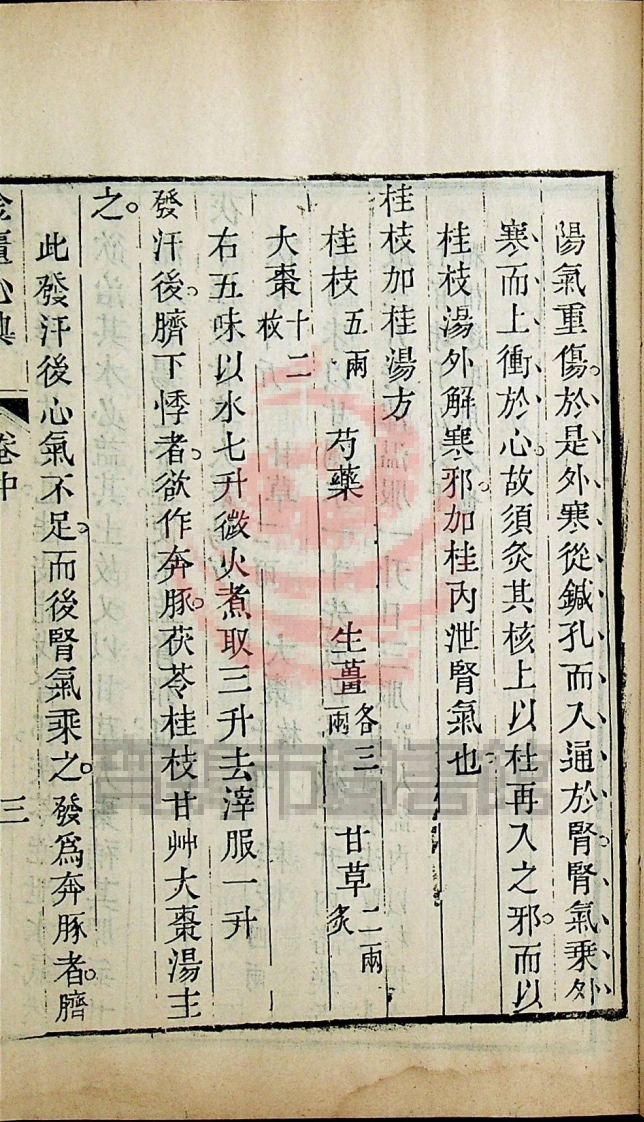 陽氣重傷。於是外寒從鍼孔而入通於腎腎氣乘外
寒而上衝於心。故須灸其核上以杜再入之邪。而以
桂枝湯外解寒邪。加桂內泄腎氣也
桂枝加桂湯方
桂枝五兩 芍藥 生薑各三兩 甘草二兩炙
大棗十二枚
右五味以水七升微火煮取三升去滓服一升
發汗後。臍下悸者。欲作奔豚。茯苓桂枝甘艸大棗湯主
之。
此發汗後心氣不足。而後腎氣乘之。發爲奔豚者。臍
金匱心典 卷中 三